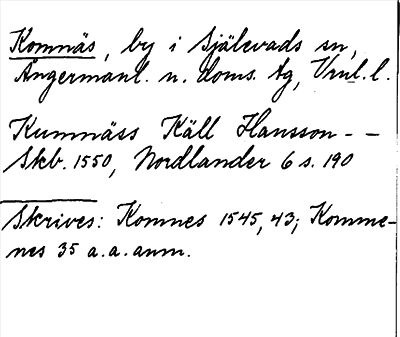 Komnäs, by i Själevads sn,
Ångermanl. n. doms. tg, Vrnl. l.
Kumnäss Käll Hansson - -
Skb. 1550, Nordlander 6 s. 190
Skrives: Komnes 1545, 43; Komme-
nes 35 a.a. anm.